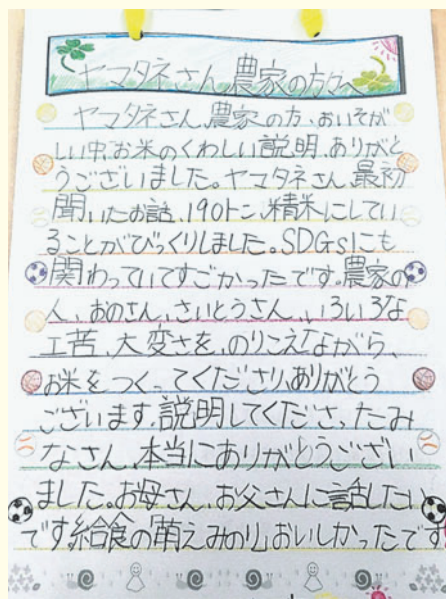 ヤマタネさん、農家の方々へ
ヤマタネさん、農家の方、おいそが
しい中、お米のくわしい説明、ありがと
うございました。ヤマタネさん、最初
聞いたお話、190トン、精米にしてい
ることがびっくりしました。SDGsにも
関わっていてすごかったです。農家の
人、おのさん、さいとうさん、いろいろな
工苦、大変さを、のりこえながら、
お米をつくってくださり、ありがとう
ございます。説明してくださったみ
なさん、本当にありがとうござい
ました。お母さん、お父さんに話したい
です。給食の「萌えみのり」おいしかったです